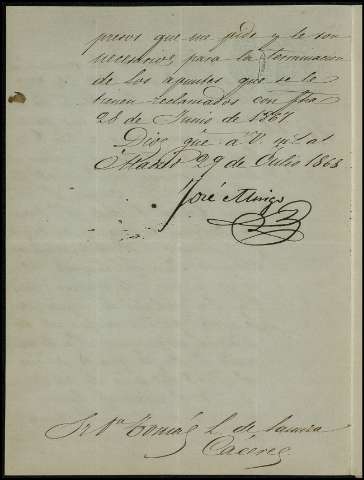 presos que me pide y le son
necesarios, para la terminacion
de los apuntes que se le
tienen reclamados con fha
28 de Junio de 1867
Dios gue á V. ms. as
Madrid 29 de Julio 1868
José Mingo
Sr Dn Tomás L. de
Cáceres